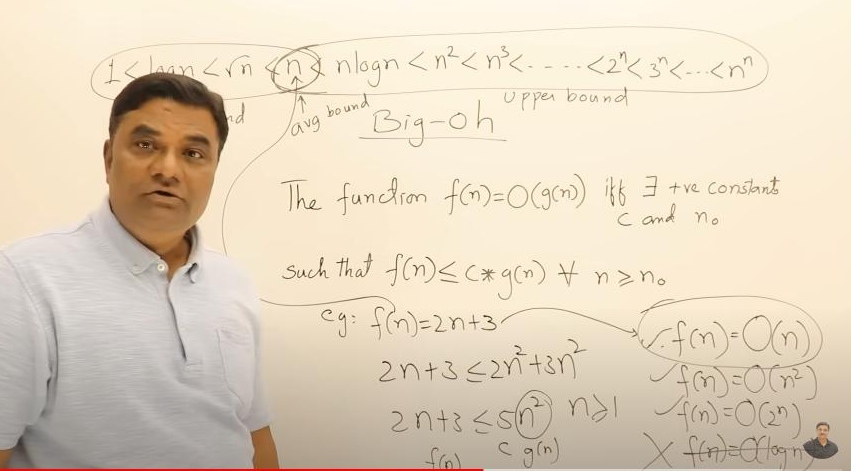 1 < logn < √n < n < nlogn < n² < n³ < - - - - - < 2ⁿ < 3ⁿ < --- < nⁿ
avg bound
Upper bound
Big-Oh
The function f(n)=O(g(n)) iff ∃ +ve constants
c and n₀
such that f(n) ≤ c*g(n) ∀ n ≥ n₀
eg: f(n)=2n+3
✓ f(n)=O(n)
2n+3 ≤ 2n²+3n²
✓ f(n)=O(n²)
2n+3 ≤ 5n² n≥1
✓ f(n)=O(2ⁿ)
f(n) c g(n)
X f(n)=O(logn